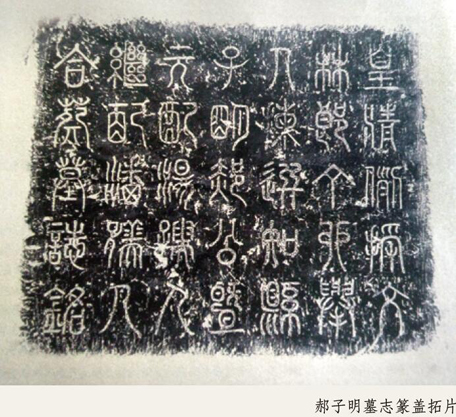 皇清例授文
林郎丁卯舉
人揀選知縣
子明郝公暨
元配湯孺人
繼配潘孺人
合葬墓誌銘
郝子明墓志篆盖拓片